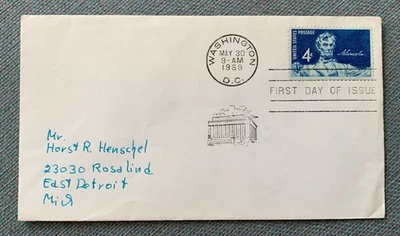 WASHINGTON
MAY 30
9-AM
1959
D.C.
UNITED STATES POSTAGE
4¢
A. Lincoln
FIRST DAY OF ISSUE
Mr.
Horst R. Henschel
23030 Rosalind
East Detroit
Mich